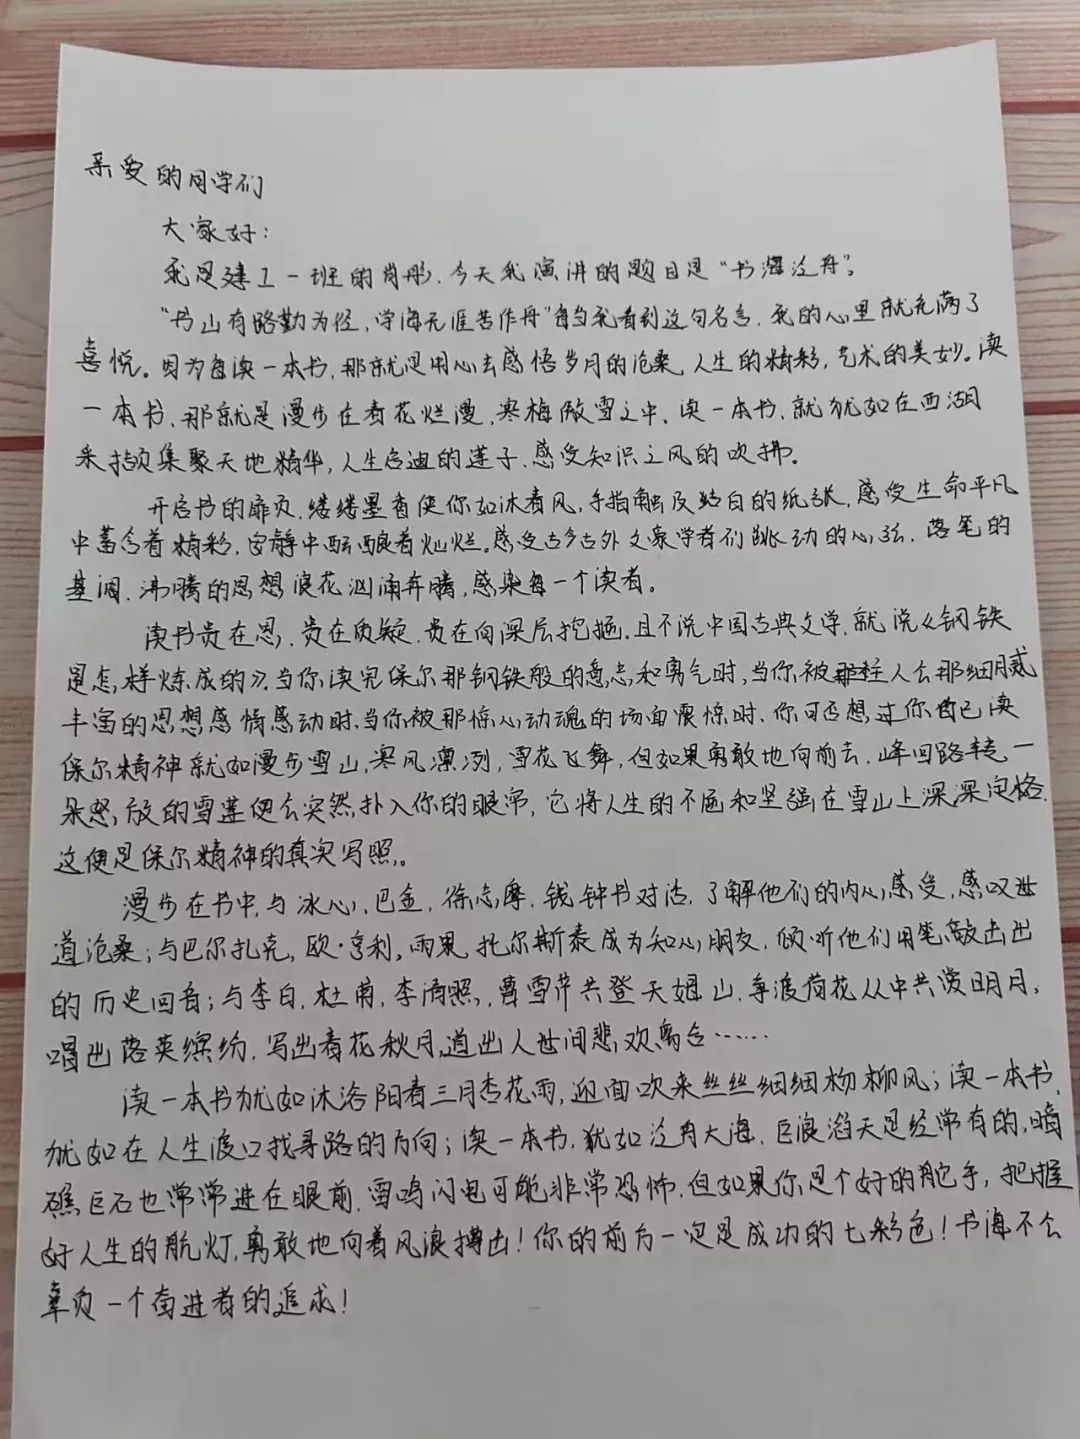 亲爱的同学们
大家好：
我是建工一班的肖彤.今天我演讲的题目是“书海泛舟”。
“书山有路勤为径,学海无涯苦作舟”每当我看到这句名言.我的心里就充满了
喜悦。因为每读一本书,那就是用心去感悟岁月的沧桑,人生的精彩,艺术的美妙.读
一本书,那就是漫步在春花烂漫,寒梅傲雪之中、读一本书.就犹如在西湖
采撷集聚天地精华,人生启迪的莲子.感受知识之风的吹拂。
开启书的扉页.缕缕墨香使你如沐春风,手指触及洁白的纸张,感受生命平凡
中蓄含着精彩,安静中酝酿着灿烂。感受古今古外文豪学者们跳动的心弦、落笔的
基调.沸腾的思想浪花汹涌奔腾,感染每一个读者。
读书贵在思,贵在质疑.贵在向深层挖掘.且不说中国古典文学.就说《钢铁
是怎样炼成的》.当你读完保尔那钢铁般的意志和勇气时,当你被主人公那细腻
丰富的思想感情感动时.当你被那惊心动魂的场面震惊时、你可否想过你自己读
保尔精神就如漫步雪山,寒风凛冽,雪花飞舞,但如果勇敢地向前去,峰回路转一
朵怒放的雪莲便会突然扑入你的眼帘,它将人生的不屈和坚强在雪山上深深定格.
这便是保尔精神的真实写照。
漫步在书中,与冰心,巴金,徐志摩.钱钟书对话.了解他们的内心感受,感叹世
道沧桑;与巴尔扎克,欧·亨利,雨果.托尔斯泰成为知心朋友.倾听他们用笔敲击出
的历史回音;与李白,杜甫,李清照,曹雪芹共登天姥山.争渡荷花从中共赏明月,
唱出落英缤纷.写出春花秋月,道出人世间悲欢离合……
读一本书犹如沐洛阳春三月杏花雨,迎面吹来丝丝细细杨柳风;读一本书,
犹如在人生渡口找寻路的方向;读一本书.犹如泛舟大海.巨浪滔天是经常有的,暗
礁巨石也常常进在眼前.雷鸣闪电可能非常恐怖.但如果你是个好的舵手,把握
好人生的航灯,勇敢地向着风浪搏击!你的前方一定是成功的七彩色!书海不会
辜负一个奋进者的追求!